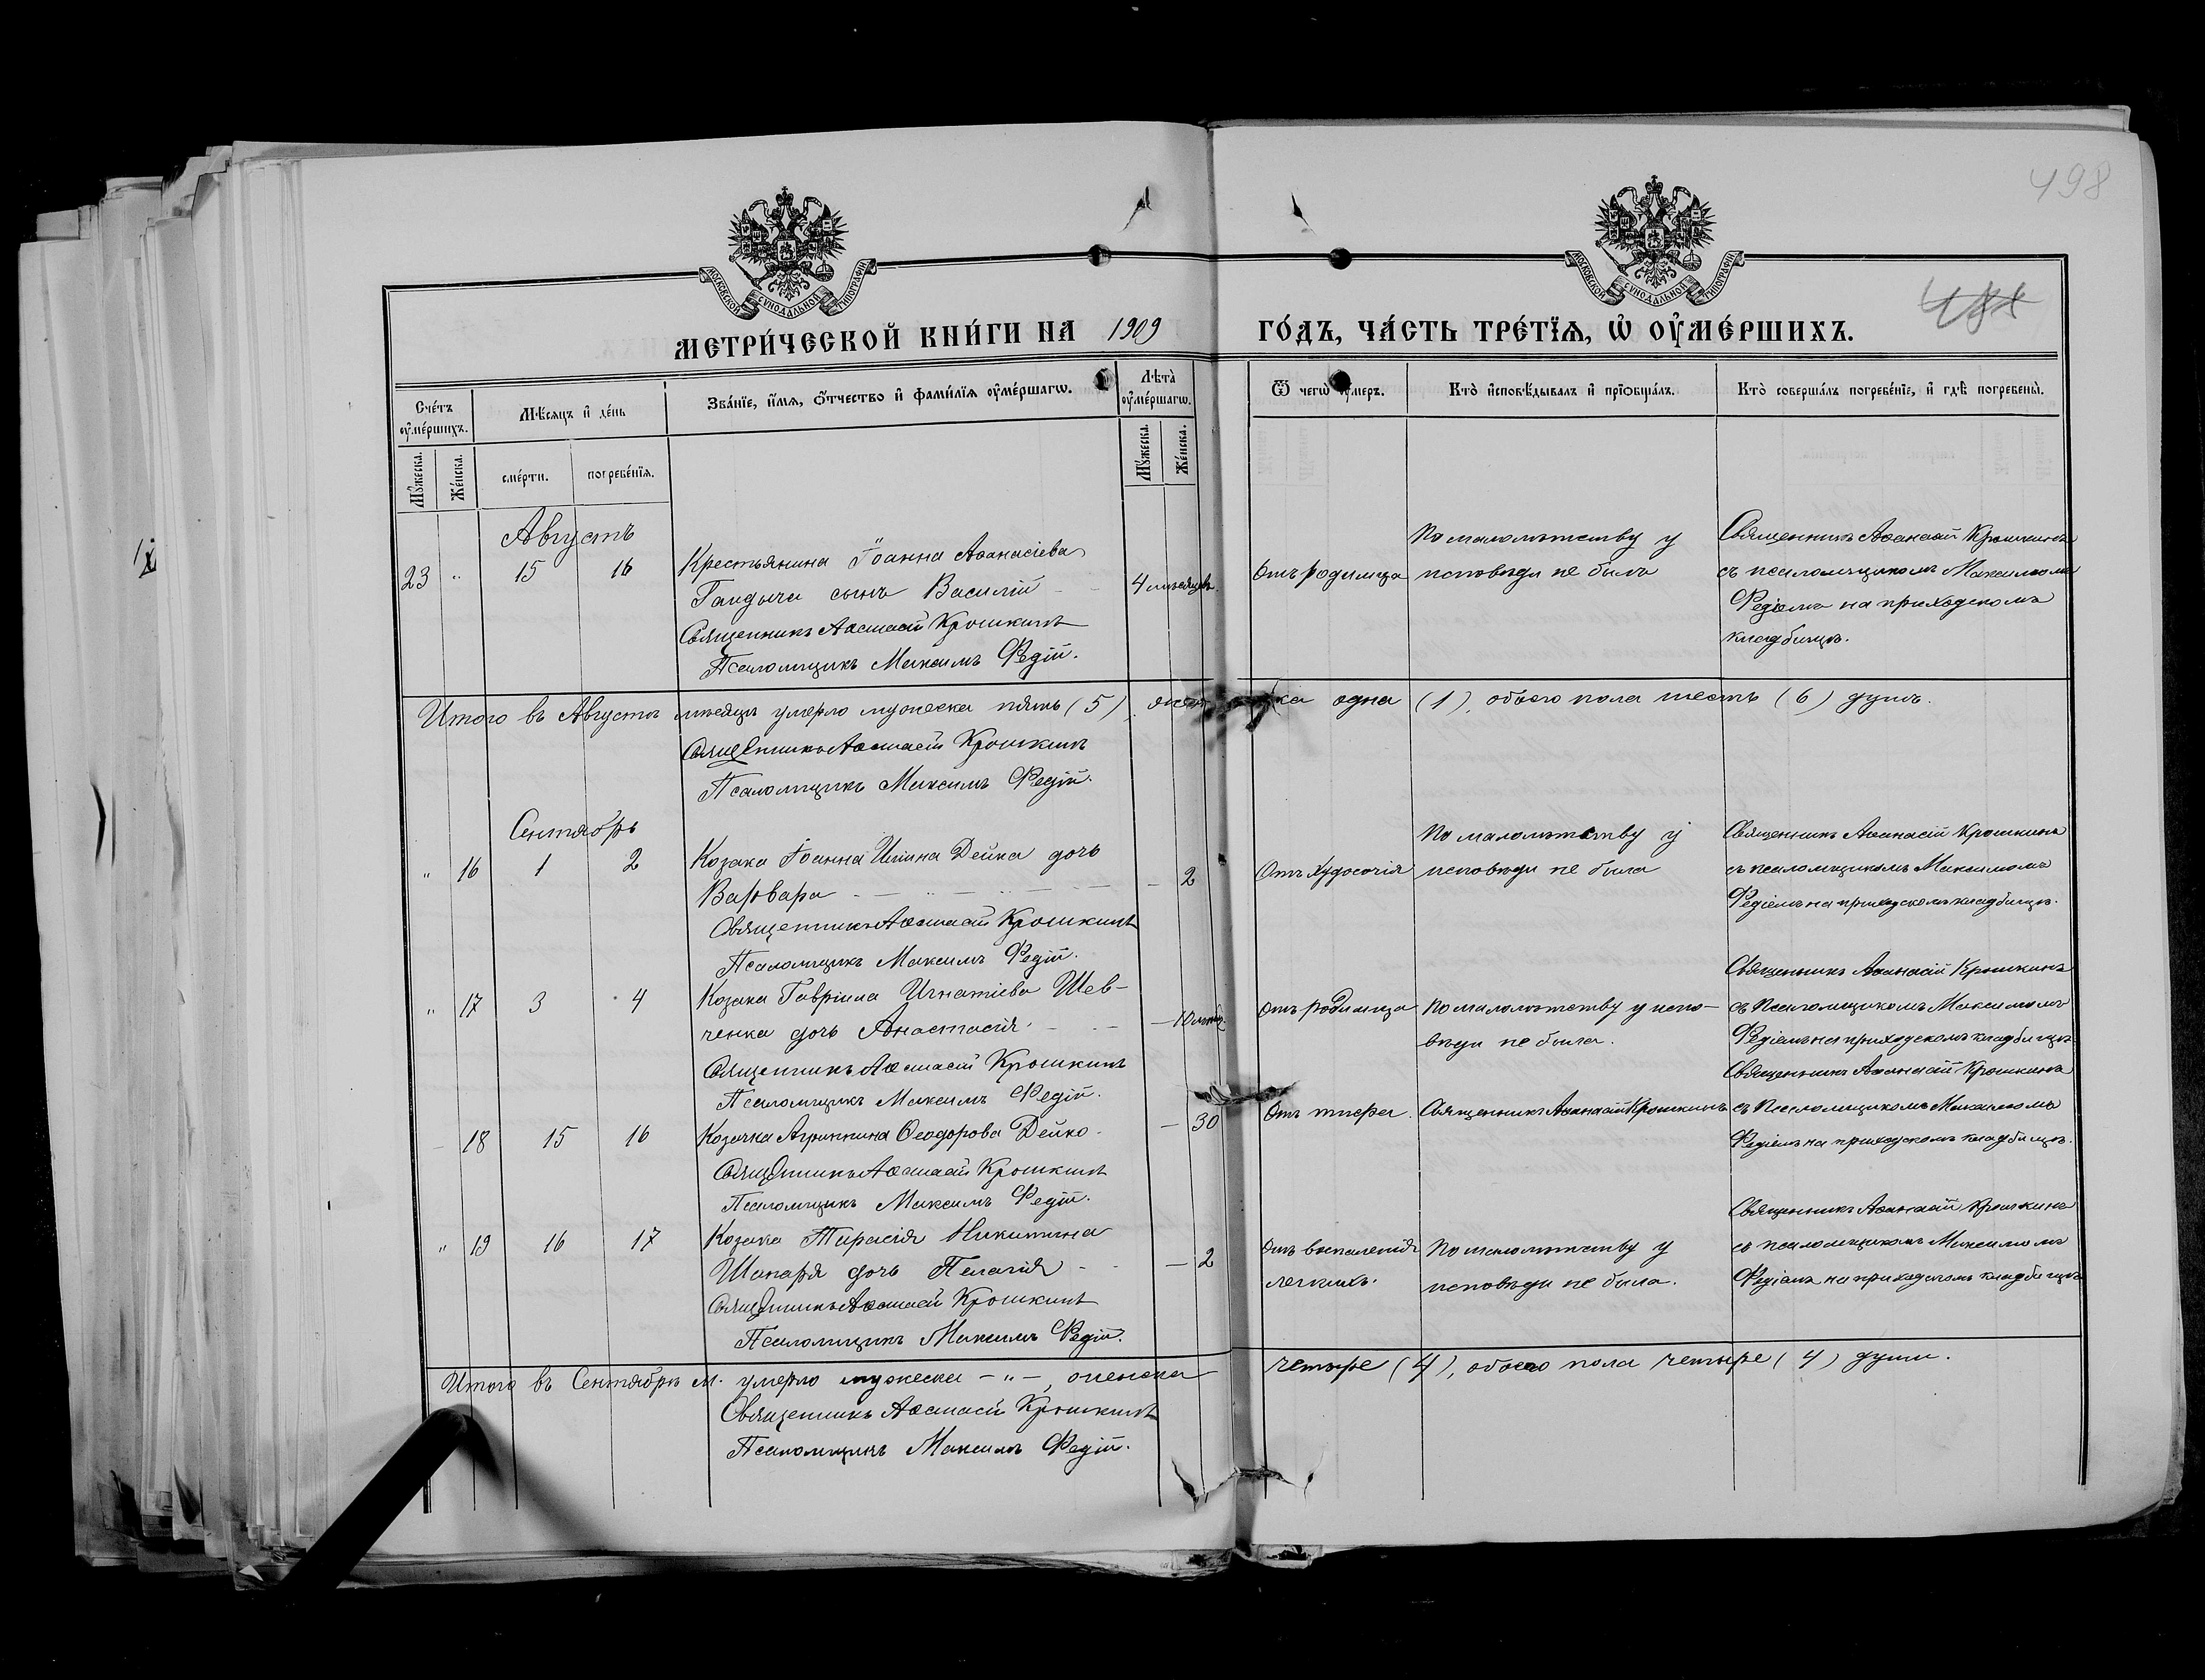 498
МОСКОВСКОЙ СѴНОДАЛЬНОЙ ТИПОГРАФІИ
МОСКОВСКОЙ СѴНОДАЛЬНОЙ ТИПОГРАФІИ
МЕТРИ́ЧЕСКОЙ КНИ́ГИ НА 1909 ГО́ДЪ, ЧА́СТЬ ТРЕ́ТЇѦ, Ѡ҆ ОУ҆МЕ́РШИХЪ.
Сче́тъ оу҆ме́ршихъ.
Мѣ́сѧцъ и҆ де́нь
Зва́нїе, и҆́мѧ, ѻ҆́тчество и҆ фами́лїѧ оу҆ме́ршагѡ.
Лѣ́та оу҆ме́ршагѡ.
Ѿ чегѡ̀ оу҆́меръ.
Кто̀ и҆сповѣ́дывалъ и҆ прїѻбща́лъ.
Кто̀ соверша́лъ погребе́нїе, и҆ гдѣ̀ погребены̀.
Мꙋ́жеска.
Же́нска.
сме́рти.
погребе́нїѧ.
Мꙋ́жеска.
Же́нска.
Августъ
23 " 15 16
Крестьянина Іоанна Аѳанасіева
Гандыча сынъ Василій
4 мѣсяцъ.
Священникъ Аѳанасій Крошкинъ
Псаломщикъ Максимъ Федій.
Отъ родимца
По малолѣтству у
исповѣди не былъ
Священникъ Аѳанасій Крошкинъ
съ псаломщикомъ Максимомъ
Федіемъ на приходскомъ
кладбищѣ.
Итого въ Августѣ мѣсяцѣ умерло мужеска пять (5), женска одна (1), обоего пола шесть (6) душъ.
Священникъ Аѳанасій Крошкинъ
Псаломщикъ Максимъ Федій.
Сентябрь
" 16 1 2
Козака Іоанна Ильина Дейка дочь
Варвара
— 2
Священникъ Аѳанасій Крошкинъ
Псаломщикъ Максимъ Федій.
Отъ худосочія
По малолѣтству у
исповѣди не была
Священникъ Аѳанасій Крошкинъ
съ псаломщикомъ Максимомъ
Федіемъ на приходскомъ кладбищѣ.
" 17 3 4
Козака Гавріила Игнатіева Шев-
ченка дочь Анастасія
— 10 мѣс.
Священникъ Аѳанасій Крошкинъ
Псаломщикъ Максимъ Федій.
Отъ родимца
По малолѣтству у испо-
вѣди не была.
Священникъ Аѳанасій Крошкинъ
съ Псаломщикомъ Максимомъ
Федіемъ на приходскомъ кладбищѣ.
18 15 16
Козачка Агриппина Ѳеодорова Дейко
— 30
Священникъ Аѳанасій Крошкинъ
Псаломщикъ Максимъ Федій.
Отъ тифа.
Священникъ Аѳанасій Крошкинъ
Священникъ Аѳанасій Крошкинъ
съ Псаломщикомъ Максимомъ
Федіемъ на приходскомъ кладбищѣ.
" 19 16 17
Козака Тарасія Никитина
Шапаря дочь Пелагія
— 2
Священникъ Аѳанасій Крошкинъ
Псаломщикъ Максимъ Федій.
Отъ воспаленія
легкихъ.
По малолѣтству у
исповѣди не была.
Священникъ Аѳанасій Крошкинъ
съ псаломщикомъ Максимомъ
Федіемъ на приходскомъ кладбищѣ
Итого въ Сентябрѣ м. умерло мужеска — " —, женска четыре (4), обоего пола четыре (4) души.
Священникъ Аѳанасій Крошкинъ
Псаломщикъ Максимъ Федій.